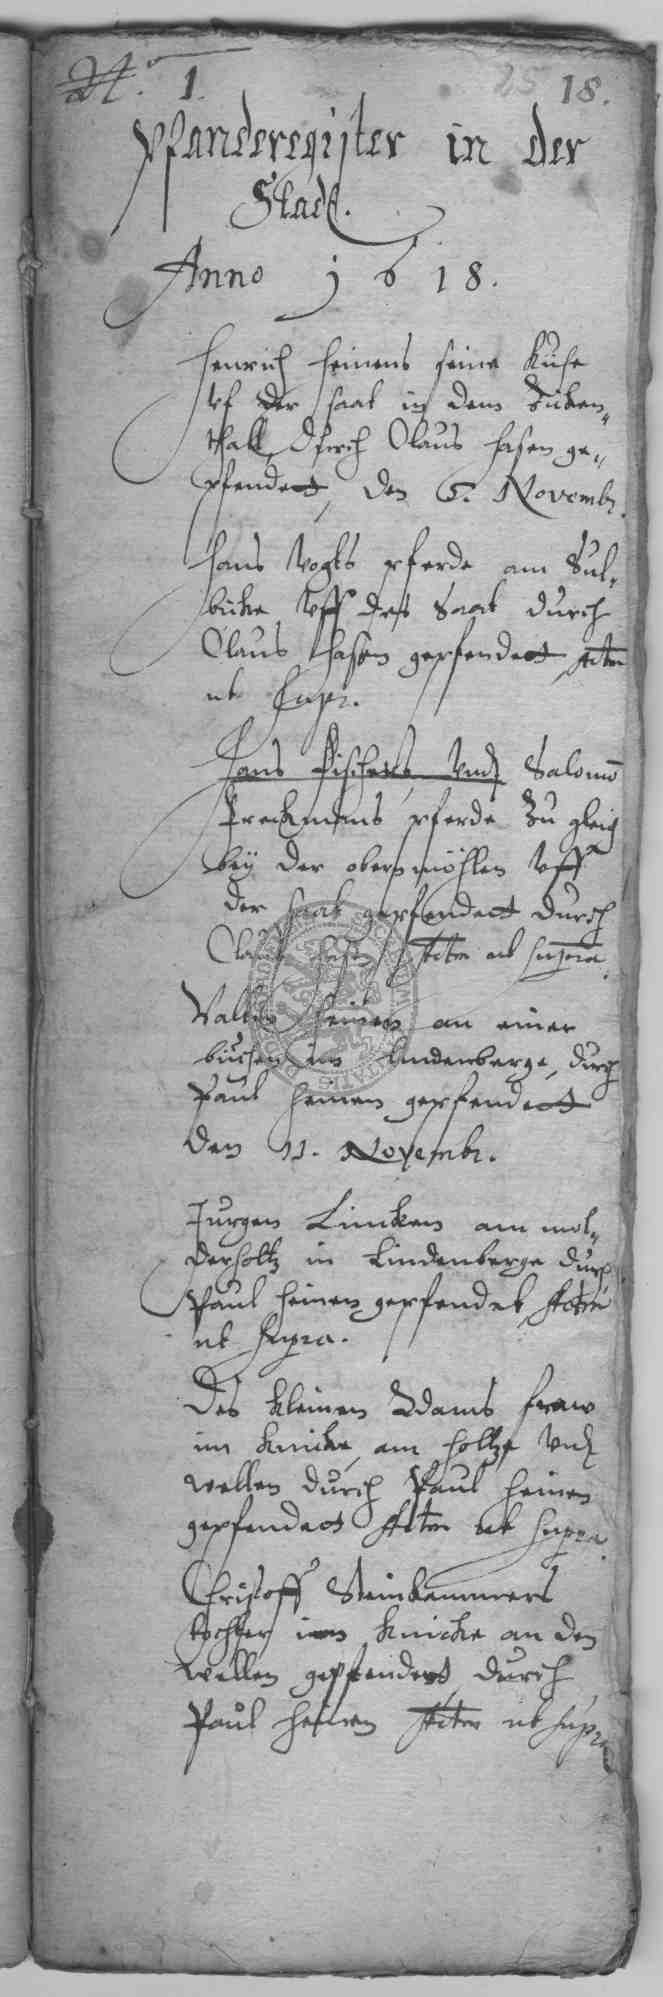 N. 1. 25 18.
Pfanderegister in der
Stadt.
Anno 1618.
Henrich Heinens seine Kühe
uf der Saat in dem
thall, durch Claus Hasen ge-
pfendett, den 6. Novembr.
Hans Vogts pferde am Sul-
bicke uff der Saat durch
Claus Hasen gepfendett
ut supr.
Hans Fischers, undt Salomo
pferde zu gleich
bey der obern möhlen uff
der Saat gepfendett durch
Claus Hasen ut supra.
Valtin Heinen an einer
büchen im Lindenberge, durch
Paul Heinen gepfendett
den 11. Novembr.
Jurgen Lincken am mol-
derholtz in Lindenberge durch
Paul Heinen gepfendet
ut supra.
Des kleinen Adams fraw
im Knicke, am holtze undt
wellen durch Paul Heinen
gepfendett ut supra.
Christoff Steinkammers
tochter im Knicke an den
wellen gepfendett, durch
Paul Heinen ut supra